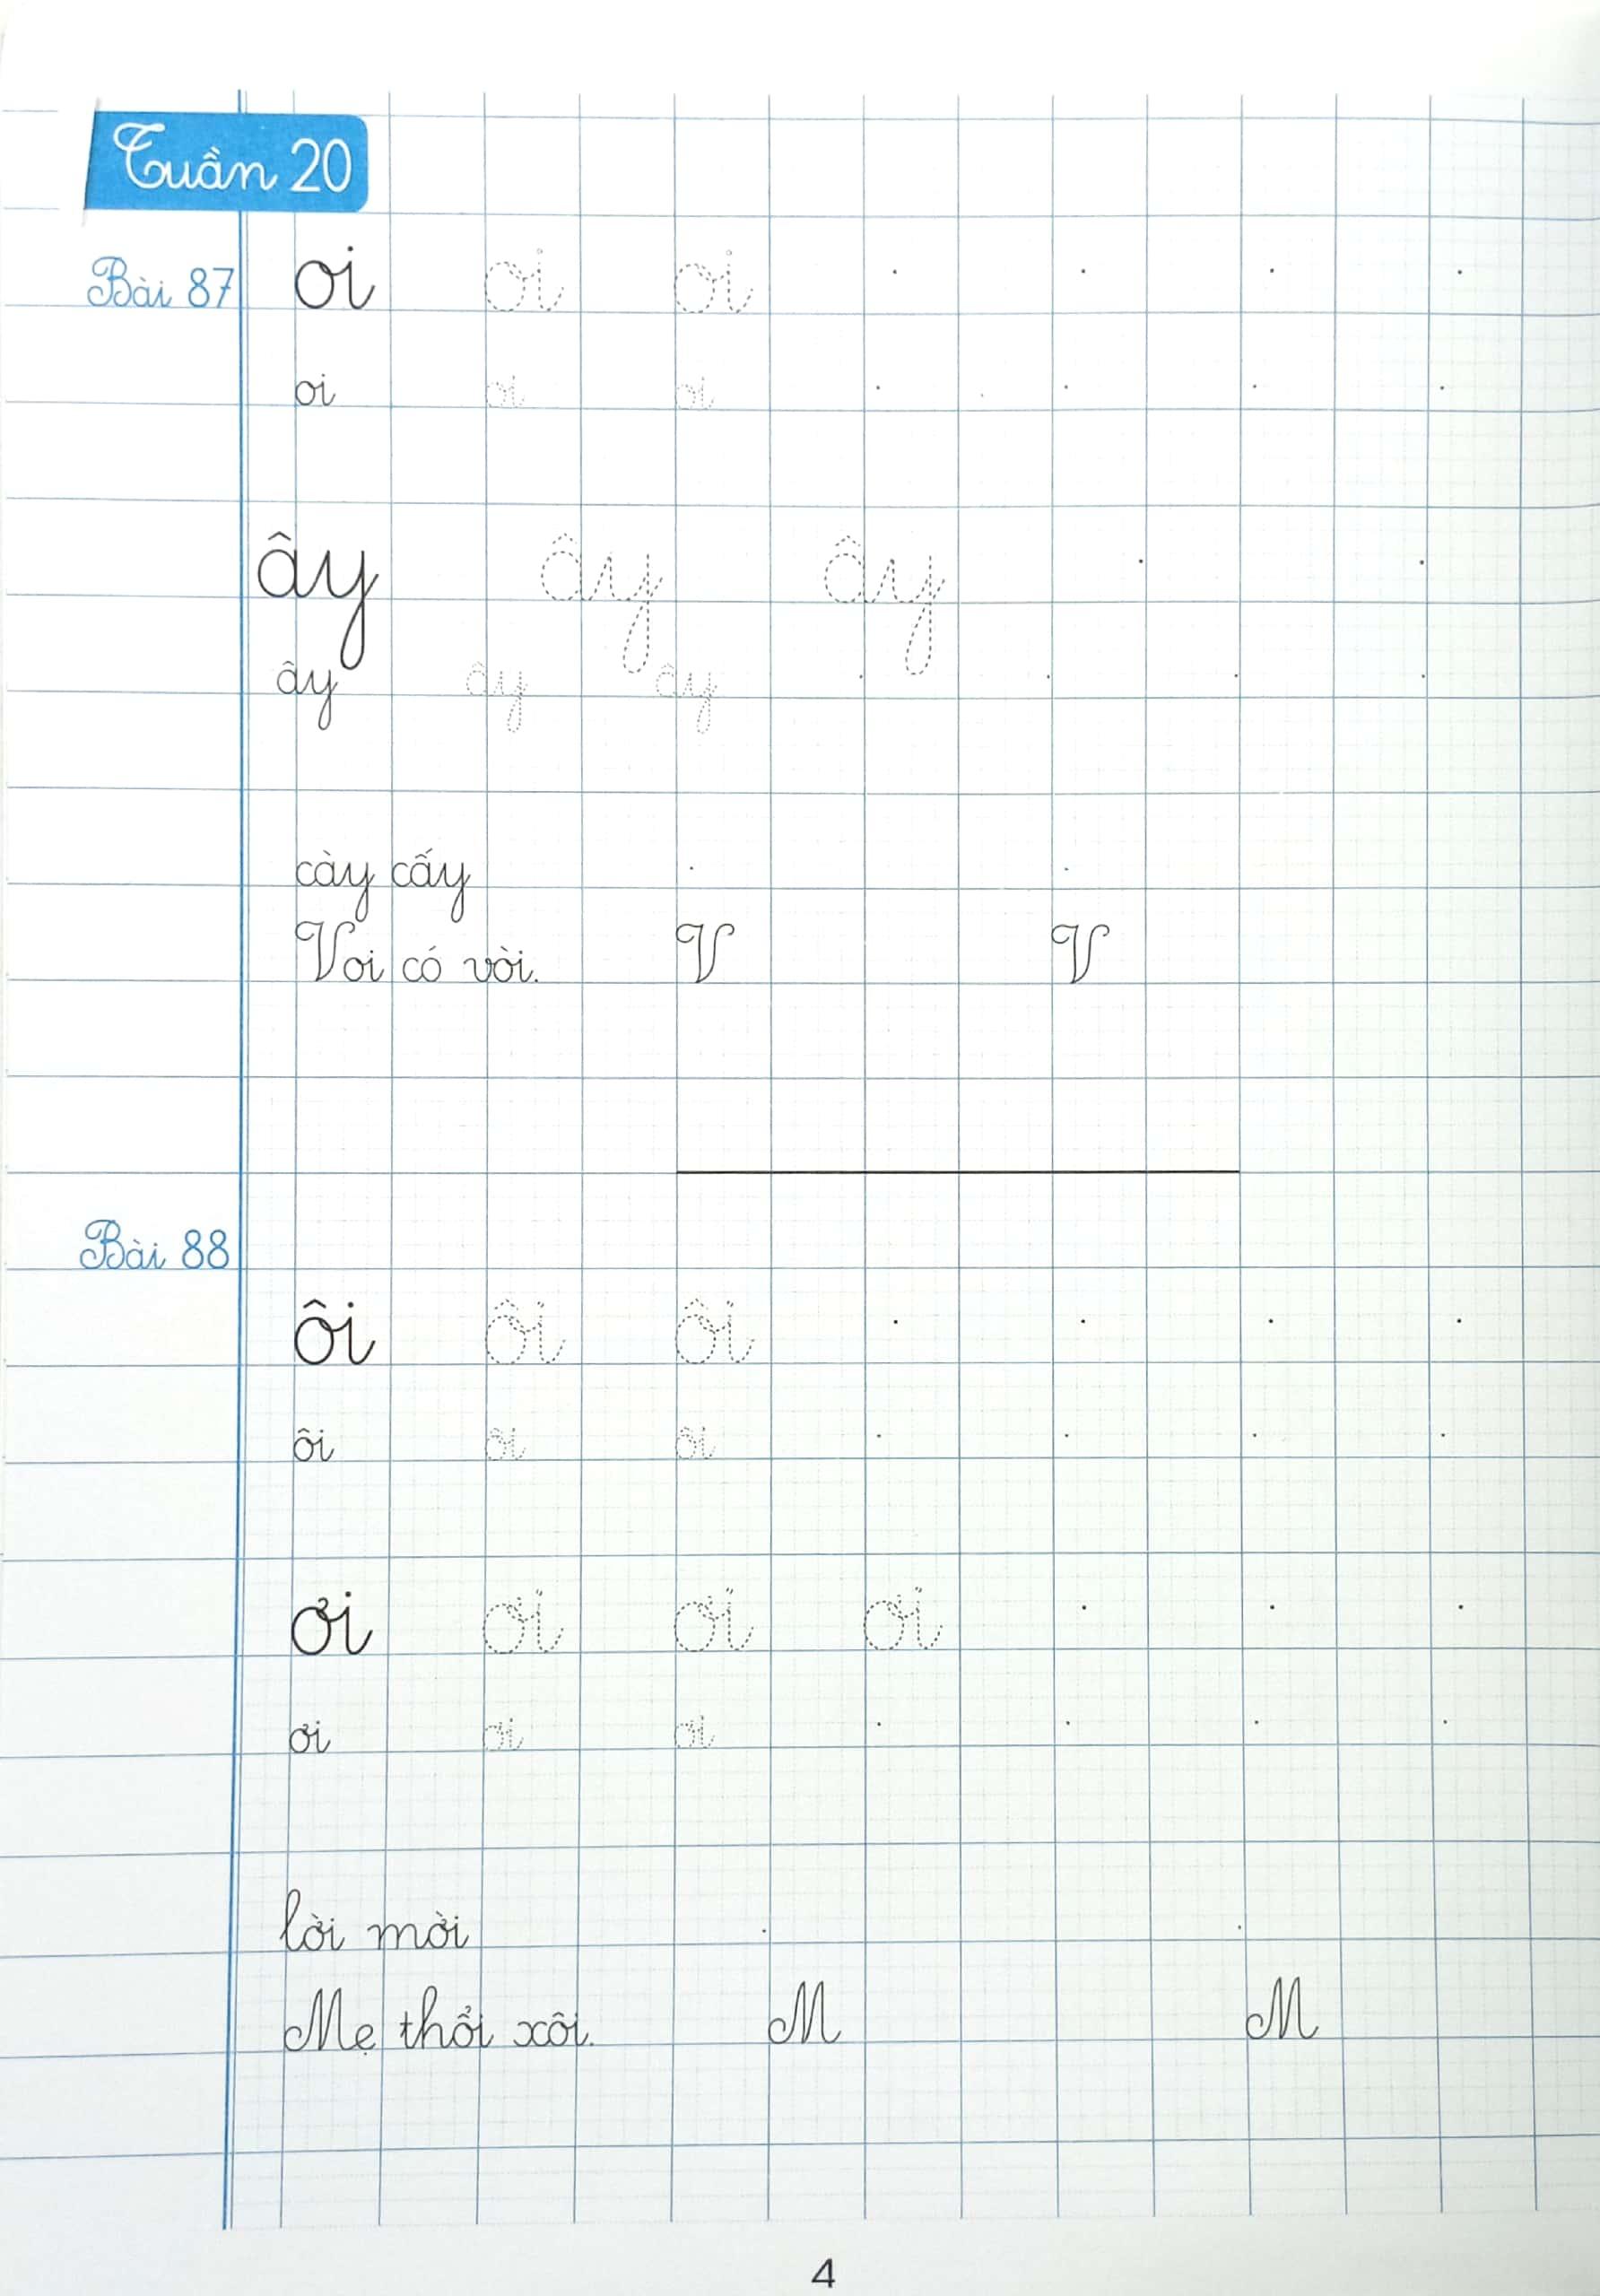 Tuần 20
Bài 87 oi oi oi
oi oi oi
ây ây ây
ây ây ây
cày cấy
Voi có vòi. V V
Bài 88
ôi ôi ôi
ôi ôi ôi
ơi ơi ơi ơi
ơi ơi ơi
lời mời
Mẹ thổi xôi. M M
4